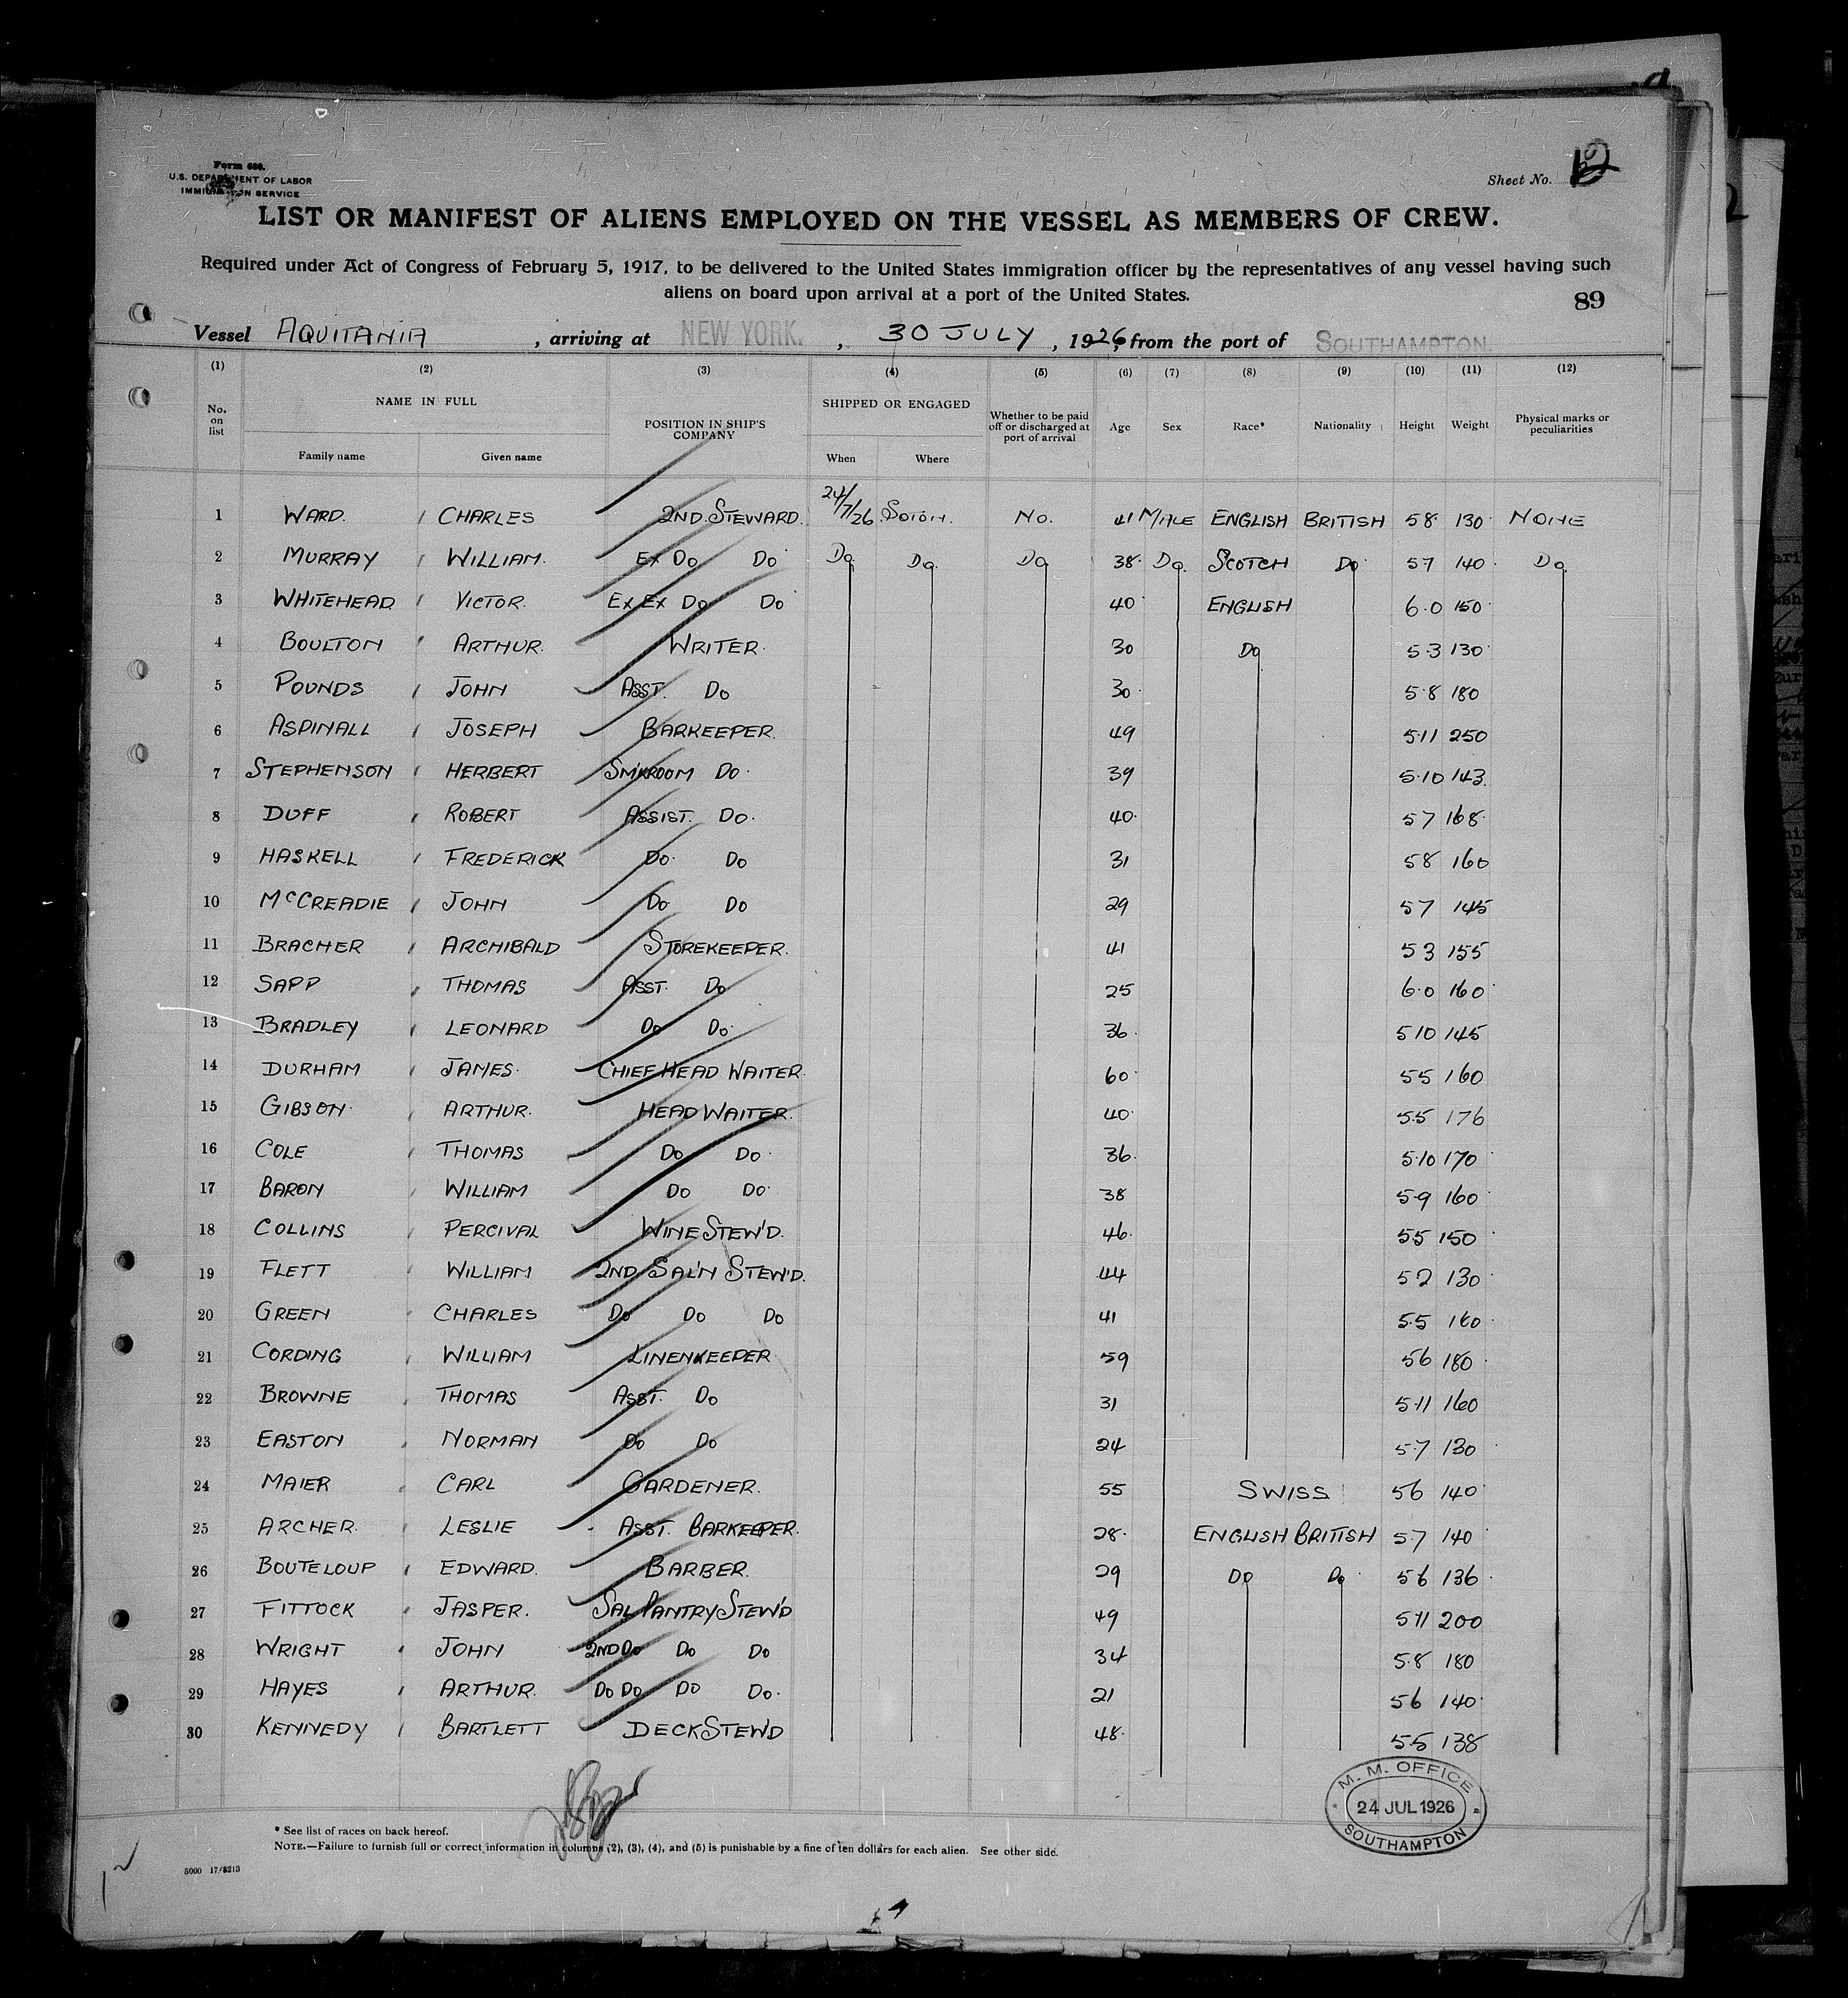 Form 680.
U.S. DEPARTMENT OF LABOR
IMMIGRATION SERVICE
Sheet No. 12
LIST OR MANIFEST OF ALIENS EMPLOYED ON THE VESSEL AS MEMBERS OF CREW.
Required under Act of Congress of February 5, 1917, to be delivered to the United States immigration officer by the representatives of any vessel having such
aliens on board upon arrival at a port of the United States.
89
Vessel AQUITANIA, arriving at NEW YORK., 30 JULY, 1926, from the port of SOUTHAMPTON.
(1) (2) (3) (4) (5) (6) (7) (8) (9) (10) (11) (12)
No. on list NAME IN FULL Family name Given name POSITION IN SHIP'S COMPANY SHIPPED OR ENGAGED When Where Whether to be paid off or discharged at port of arrival Age Sex Race* Nationality Height Weight Physical marks or peculiarities
1 WARD. CHARLES 2ND. STEWARD. 24/7/26 SOTON. NO. 41 MALE ENGLISH BRITISH 58 130 NONE
2 MURRAY WILLIAM. EX DO DO DO DO DO 38 DO SCOTCH DO 57 140 DO
3 WHITEHEAD VICTOR. EX EX DO DO 40 ENGLISH 6.0 150
4 BOULTON ARTHUR. WRITER. 30 DO 5.3 130
5 POUNDS JOHN ASST. DO 30 5.8 180
6 ASPINALL JOSEPH BARKEEPER. 49 5.11 250
7 STEPHENSON HERBERT SM'KROOM DO. 39 5.10 143.
8 DUFF ROBERT ASSIST. DO. 40. 57 168.
9 HASKELL FREDERICK DO. DO 31 58 160
10 McCREADIE JOHN DO DO 29 57 145
11 BRACHER ARCHIBALD STOREKEEPER. 41 53 155
12 SAPP THOMAS ASST. DO 25 6.0 160
13 BRADLEY LEONARD DO DO. 36. 510 145
14 DURHAM JAMES. CHIEF HEAD WAITER. 60 55 160
15 GIBSON. ARTHUR. HEAD WAITER. 40. 5.5 176
16 COLE THOMAS DO DO. 36. 5.10 170
17 BARON WILLIAM DO DO. 38 5.9 160
18 COLLINS PERCIVAL WINE STEW'D. 46. 5.5 150
19 FLETT WILLIAM 2ND SAL'N STEW'D. 44 52 130
20 GREEN CHARLES DO DO DO 41 5.5 160
21 CORDING WILLIAM LINENKEEPER 59 56 180
22 BROWNE THOMAS ASST. DO 31 5.11 160
23 EASTON NORMAN DO DO 24 5.7 130
24 MAIER CARL GARDENER. 55 SWISS 56 140
25 ARCHER. LESLIE ASST. BARKEEPER. 28. ENGLISH BRITISH 5.7 140
26 BOUTELOUP EDWARD. BARBER. 29 DO DO 56 136
27 FITTOCK JASPER. SAL PANTRY STEW'D 49 5.11 200
28 WRIGHT JOHN 2ND DO DO DO 34 5.8 180
29 HAYES ARTHUR. DO DO DO DO. 21 56 140
30 KENNEDY BARTLETT DECK STEW'D 48. 5.5 138
M. M. OFFICE
24 JUL 1926
SOUTHAMPTON
* See list of races on back hereof.
NOTE.—Failure to furnish full or correct information in columns (2), (3), (4), and (5) is punishable by a fine of ten dollars for each alien. See other side.
5000 17/8213